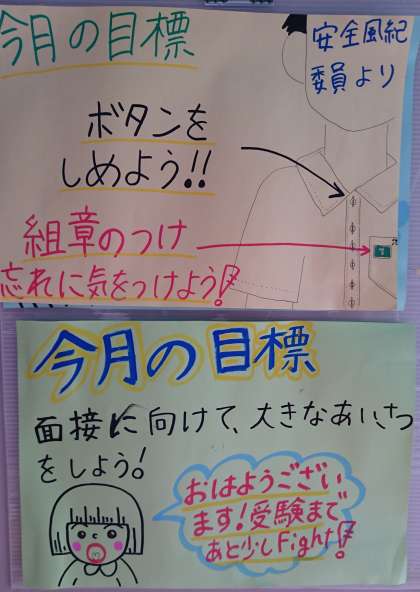 今月の目標
安全風紀
委員より
ボタンを
しめよう!!
組章のつけ
忘れに気をつけよう!
今月の目標
面接に向けて、大きなあいさつ
をしよう!
おはようござい
ます!受験まで
あと少しFight!